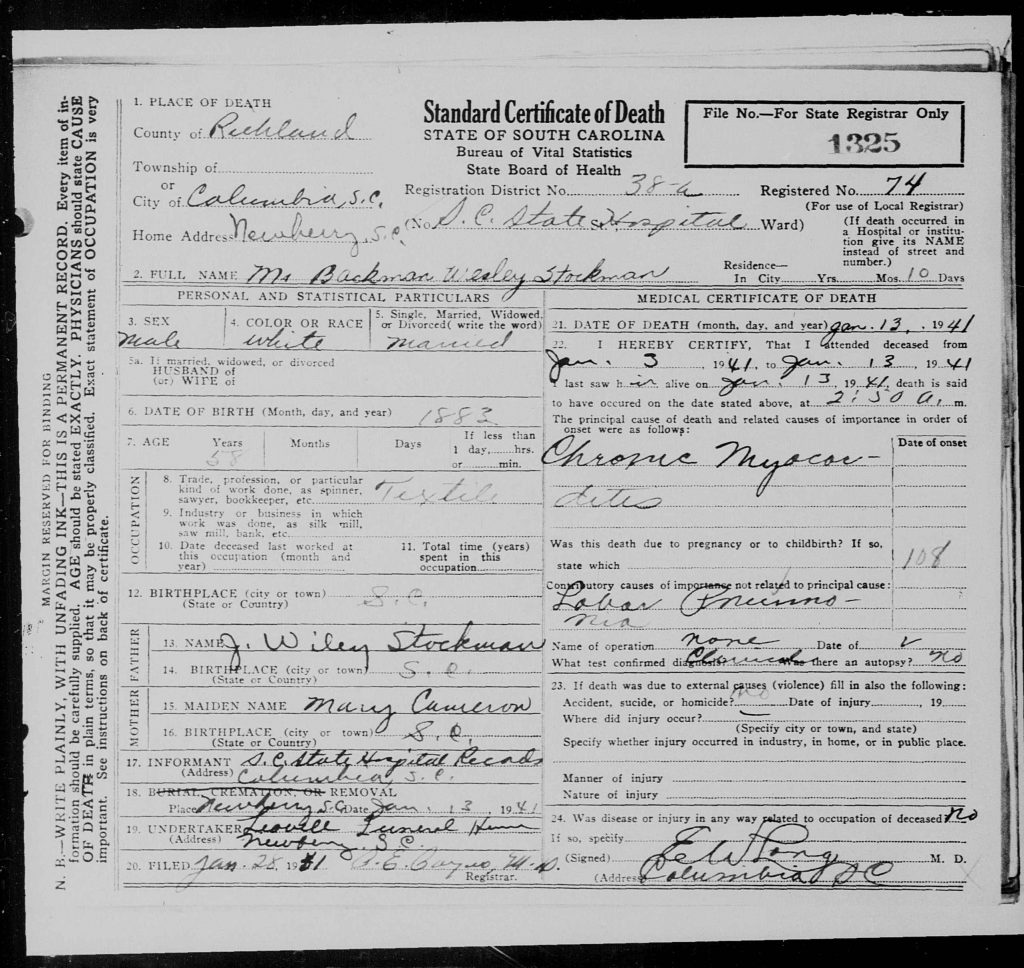 MARGIN RESERVED FOR BINDING
N. B.—WRITE PLAINLY, WITH UNFADING INK—THIS IS A PERMANENT RECORD. Every item of in-
formation should be carefully supplied. AGE should be stated EXACTLY. PHYSICIANS should state CAUSE
OF DEATH in plain terms, so that it may be properly classified. Exact statement of OCCUPATION is very
important. See instructions on back of certificate.
1. PLACE OF DEATH
County of Richland
Township of
or
City of Columbia, S.C.
Home Address Newberry, S.C.
Standard Certificate of Death
STATE OF SOUTH CAROLINA
Bureau of Vital Statistics
State Board of Health
File No.—For State Registrar Only
1325
Registration District No. 38-a Registered No. 74
(For use of Local Registrar)
(No. S. C. State Hospital Ward)
(If death occurred in
a Hospital or institu-
tion give its NAME
instead of street and
number.)
2. FULL NAME Mr Backman Wesley Stockman
Residence—
In City Yrs. Mos. 10 Days
PERSONAL AND STATISTICAL PARTICULARS
3. SEX
Male
4. COLOR OR RACE
White
5. Single, Married, Widowed,
or Divorced (write the word)
Married
5a. If married, widowed, or divorced
HUSBAND of
(or) WIFE of
6. DATE OF BIRTH (Month, day, and year) 1883
7. AGE Years Months Days
58
If less than
1 day, hrs.
or min.
OCCUPATION
8. Trade, profession, or particular
kind of work done, as spinner,
sawyer, bookkeeper, etc. Textile
9. Industry or business in which
work was done, as silk mill,
saw mill, bank, etc.
10. Date deceased last worked at
this occupation (month and
year)
11. Total time (years)
spent in this
occupation
12. BIRTHPLACE (city or town) S.C.
(State or Country)
FATHER
13. NAME J. Wiley Stockman
14. BIRTHPLACE (city or town) S.C.
(State or Country)
MOTHER
15. MAIDEN NAME Mary Cameron
16. BIRTHPLACE (city or town) S.C.
(State or Country)
17. INFORMANT S.C. State Hospital Records
(Address) Columbia, S.C.
18. BURIAL, CREMATION, OR REMOVAL
Place Newberry, S.C. Date Jan. 13 1941
19. UNDERTAKER Leavell Funeral Home
(Address) Newberry, S.C.
20. FILED Jan 28, 1941 M.D.
Registrar.
MEDICAL CERTIFICATE OF DEATH
21. DATE OF DEATH (month, day, and year) Jan. 13, 1941
22. I HEREBY CERTIFY, That I attended deceased from
Jan. 3, 1941, to Jan. 13, 1941
I last saw him alive on Jan. 13, 1941, death is said
to have occured on the date stated above, at 2:50 a. m.
The principal cause of death and related causes of importance in order of
onset were as follows:
Date of onset
Chronic Myocar-
ditis
Was this death due to pregnancy or to childbirth? If so,
state which
108
Contributory causes of importance not related to principal cause:
Lobar Pneumo-
nia
Name of operation none Date of
What test confirmed diagnosis? Clinical Was there an autopsy? no
23. If death was due to external causes (violence) fill in also the following:
Accident, sucide, or homicide? no Date of injury , 19
Where did injury occur?
(Specify city or town, and state)
Specify whether injury occurred in industry, in home, or in public place.
Manner of injury
Nature of injury
24. Was disease or injury in any way related to occupation of deceased no
If so, specify
(Signed) M. D.
(Address) Columbia, S C